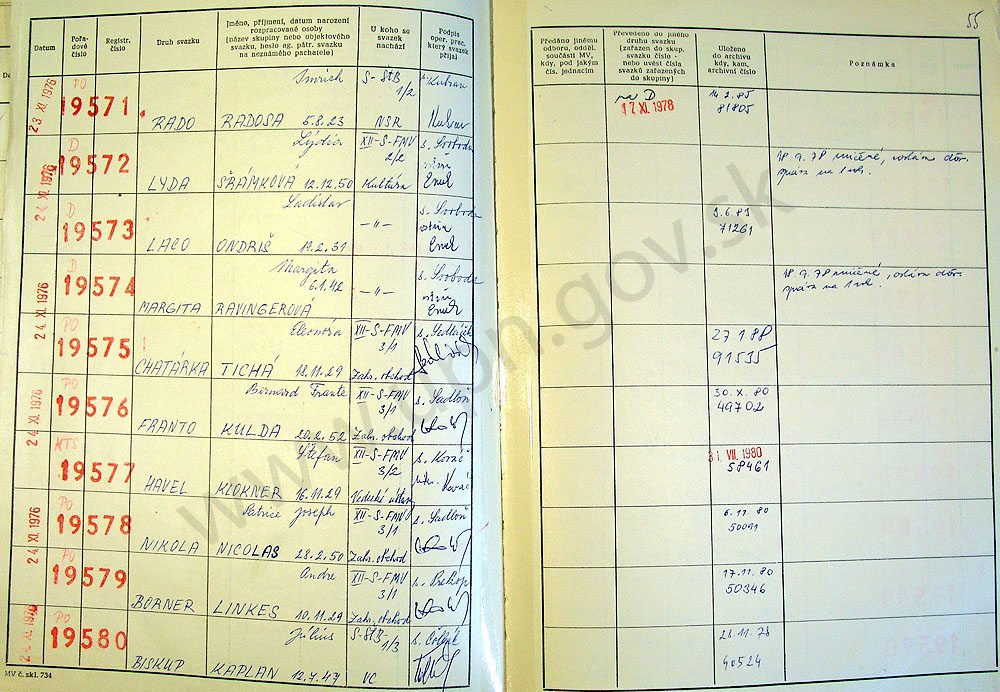 55
Datum
Pořa-
dové
číslo
Registr.
číslo
Druh svazku
Jméno, příjmení, datum narození
rozpracované osoby
(název skupiny nebo objektového
svazku, heslo ag. pátr. svazku
na neznámého pachatele)
U koho se
svazek
nachází
Podpis
oper. prac.
který svazek
přijal
Předáno jinému
odboru, odděl.
součásti MV,
kdy, pod jakým
čís. jednacím
Převedeno do jiného
druhu svazku
(zařazen do skup.
svazku číslo -
nebo uvést čísla
svazků zařazených
do skupiny)
Uloženo
do archivu
kdy, kam,
archivní číslo
Poznámka
23. XI. 1976 PO 19571 Imrich S-ŠtB 1/2
RADO RADOSA 5.8.23 NSR
na D
17. XI. 1978
14 2. 85
81805
24. XI. 1976 D 19572 Lýdia XII-S-FMV 2/2 s. Svoboda
LYDA ŠRÁMKOVÁ 12.12.50 Kultúra
18. 9. 78 zničené,
D 19573 Ladislav -"- s. Svoboda
LACO ONDRIŠ
3. 6. 83
71261
24. XI. 1976 D 19574 Margita 6.1.42 -"- s. Svoboda
MARGITA RAVINGEROVÁ
18. 9. 78 zničené,
PO 19575 Eleonóra XII-S-FMV 3/1 s. Sedláček
CHATÁRKA TICHÁ 18.11.29 Zahr. obchod
27 1 88
91535
24. XI. 1976 PO 19576 Bernard Frante XII-S-FMV 3/1 s. Sadloň
FRANTO KULDA 20.2.52 Zahr. obchod
30. X. 80
49702
KTS 19577 Štefan XII-S-FMV 3/2 s. Kováč
HAVEL KLOKNER 16.11.29 Vedecké ústavy
31. VII. 1980
58461
24. XI. 1976 PO 19578 Patrice Joseph XII-S-FMV 3/1 s. Sadloň
NIKOLA NICOLAS 28.2.50 Zahr. obchod
6. 11. 80
50091
PO 19579 Andre XII-S-FMV 3/1 s. Prekop
BORNER LINKES 10.11.29 Zahr. obchod
17. 11. 80
50346
24. XI. 1976 PO 19580 Július S-ŠtB 1/3
BISKUP KAPLAN 12.7.47 VC
28. 11. 78
40524
MV č. skl. 734
www.upn.gov.sk